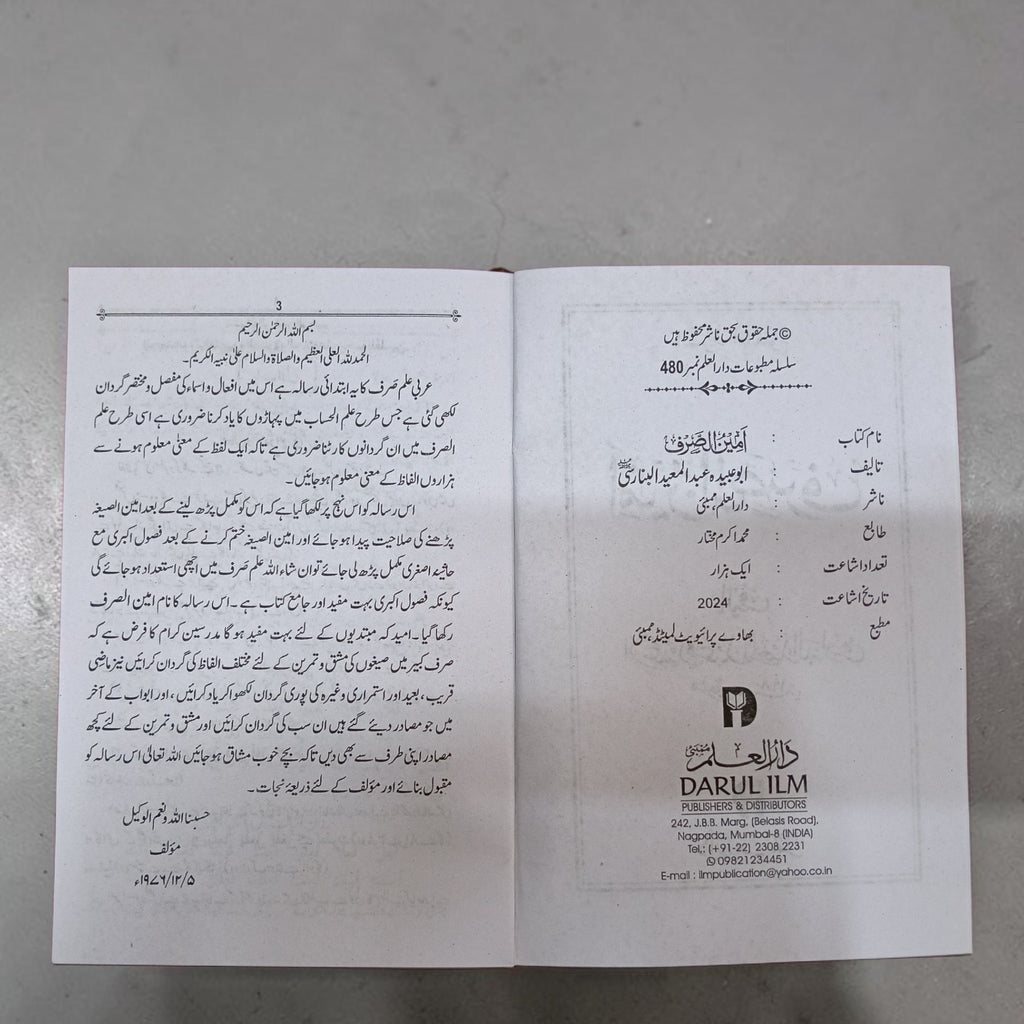 © جملہ حقوق بحق ناشر محفوظ ہیں
سلسلہ مطبوعات دارالعلم نمبر 480
نام کتاب : اَمِیْنُ الصَّرْف
تالیف : ابوعبیدہ عبدالمعید البنارسیؒ
ناشر : دارالعلم، ممبئی
طابع : محمد اکرم مختار
تعداد اشاعت : ایک ہزار
تاریخ اشاعت : 2024
مطبع : بھاوے پرائیویٹ لمیٹڈ، ممبئی
دَارُالعِلم ممبئی
DARUL ILM
PUBLISHERS & DISTRIBUTORS
242, J.B.B. Marg. (Belasis Road),
Nagpada, Mumbai-8 (INDIA)
Tel.: (+91-22) 2308 2231
09821234451
E-mail : ilmpublication@yahoo.co.in
3
بسم اللہ الرحمٰن الرحیم
الحمد للہ العلی العظیم والصلاۃ والسلام علیٰ نبیہ الکریم۔
عربی علم صَرف کا یہ ابتدائی رسالہ ہے اس میں افعال و اسماء کی مفصل و مختصر گردان
لکھی گئی ہے جس طرح علم الحساب میں پہاڑوں کا یاد کرنا ضروری ہے اسی طرح علم
الصرف میں ان گردانوں کا رٹنا ضروری ہے تاکہ ایک لفظ کے معنیٰ معلوم ہونے سے
ہزاروں الفاظ کے معنی معلوم ہوجائیں۔
اس رسالہ کو اس نہج پر لکھا گیا ہے کہ اس کو مکمل پڑھ لینے کے بعد امین الصیغہ
پڑھنے کی صلاحیت پیدا ہوجائے اور امین الصیغہ ختم کرنے کے بعد فصول اکبری مع
حاشیہ اصغری مکمل پڑھ لی جائے تو ان شاء اللہ علم صَرف میں اچھی استعداد ہوجائے گی
کیونکہ فصول اکبری بہت مفید اور جامع کتاب ہے۔ اس رسالہ کا نام امین الصرف
رکھا گیا۔ امید کہ مبتدیوں کے لئے بہت مفید ہوگا مدرسین کرام کا فرض ہے کہ
صرف کبیر میں صیغوں کی مشق و تمرین کے لئے مختلف الفاظ کی گردان کرائیں نیز ماضی
قریب، بعید اور استمراری وغیرہ کی پوری گردان لکھوا کر یاد کرائیں، اور ابواب کے آخر
میں جو مصادر دیئے گئے ہیں ان سب کی گردان کرائیں اور مشق و تمرین کے لئے کچھ
مصادر اپنی طرف سے بھی دیں تاکہ بچے خوب مشاق ہوجائیں اللہ تعالیٰ اس رسالہ کو
مقبول بنائے اور مؤلف کے لئے ذریعۂ نجات۔
حسبنا اللہ ونعم الوکیل
مؤلف
۱۹۷۶/۱۲/۵ء